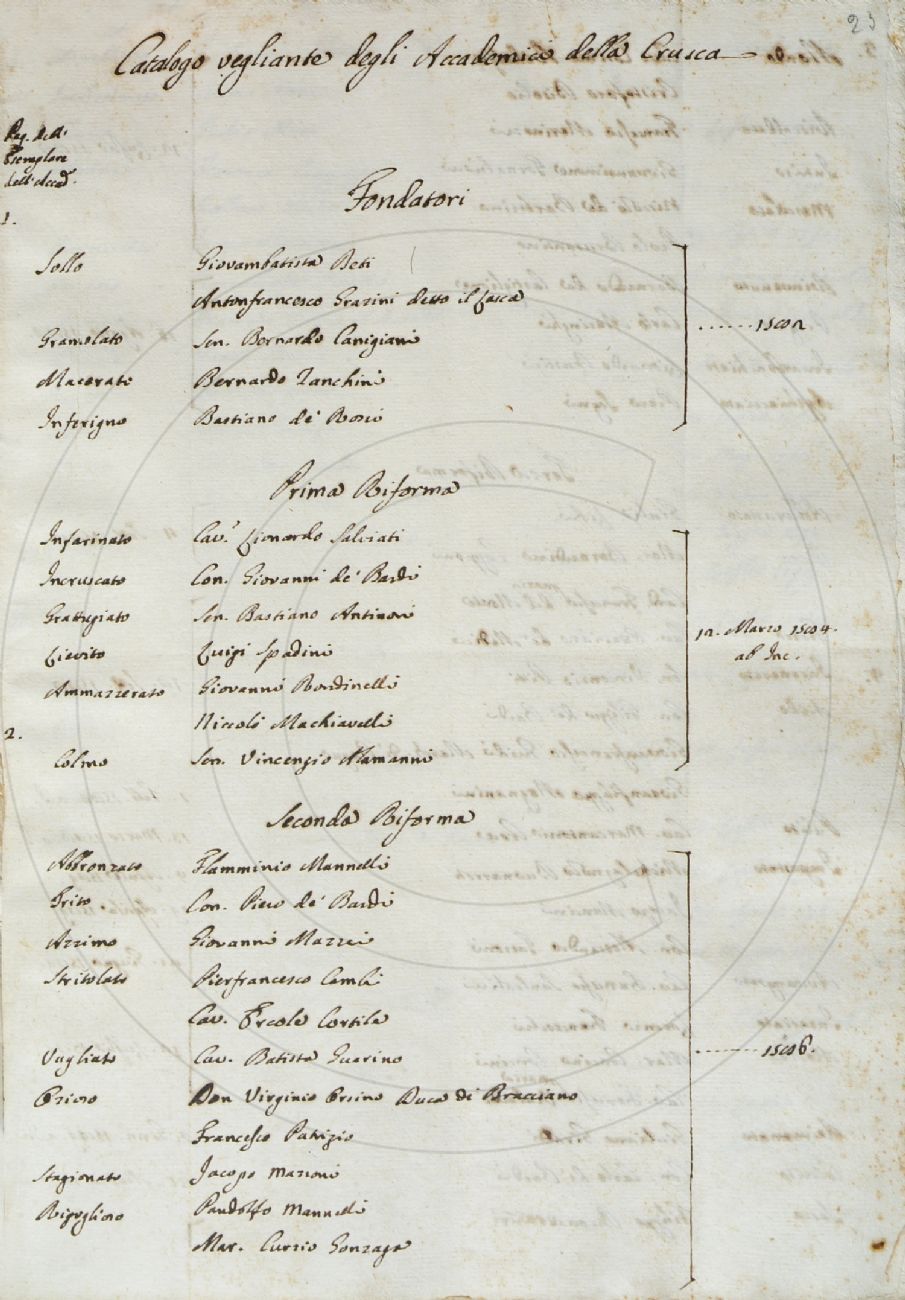 23
Catalogo vegliante degli Accademici della Crusca
Pag. dell'
Esemplare
dell'Accad.
1.
Fondatori
Sollo Giovambatista Deti
Antonfrancesco Grazini detto il Lasca
Gramolato Sen. Bernardo Canigiani
Macerato Bernardo Zanchini
Inferigno Bastiano de' Rossi
1582
Prima Riforma
Infarinato Cav.r Lionardo Salviati
Incruscato Con. Giovanni de' Bardi
Grattugiato Sen. Bastiano Antinori
Lievito Luigi Spadini
Ammazzerato Giovanni Rondinelli
Niccolò Machiavelli
2.
Colmo Sen. Vincenzio Alamanni
12. Marzo 1584.
ab Inc.
Seconda Riforma
Abbronzato Flamminio Mannelli
Trito Con. Piero de' Bardi
Azzimo Giovanni Mazzei
Stritolato Pierfrancesco Cambi
Cav. Ercole Cortile
Vagliato Cav. Batista Guarino
Don Virginio Orsino Duca di Bracciano
Francesco Patrizio
Stagionato Jacopo Mazzoni
Rigoglioso Pandolfo Mannelli
Mar. Curzio Gonzaga
1586.